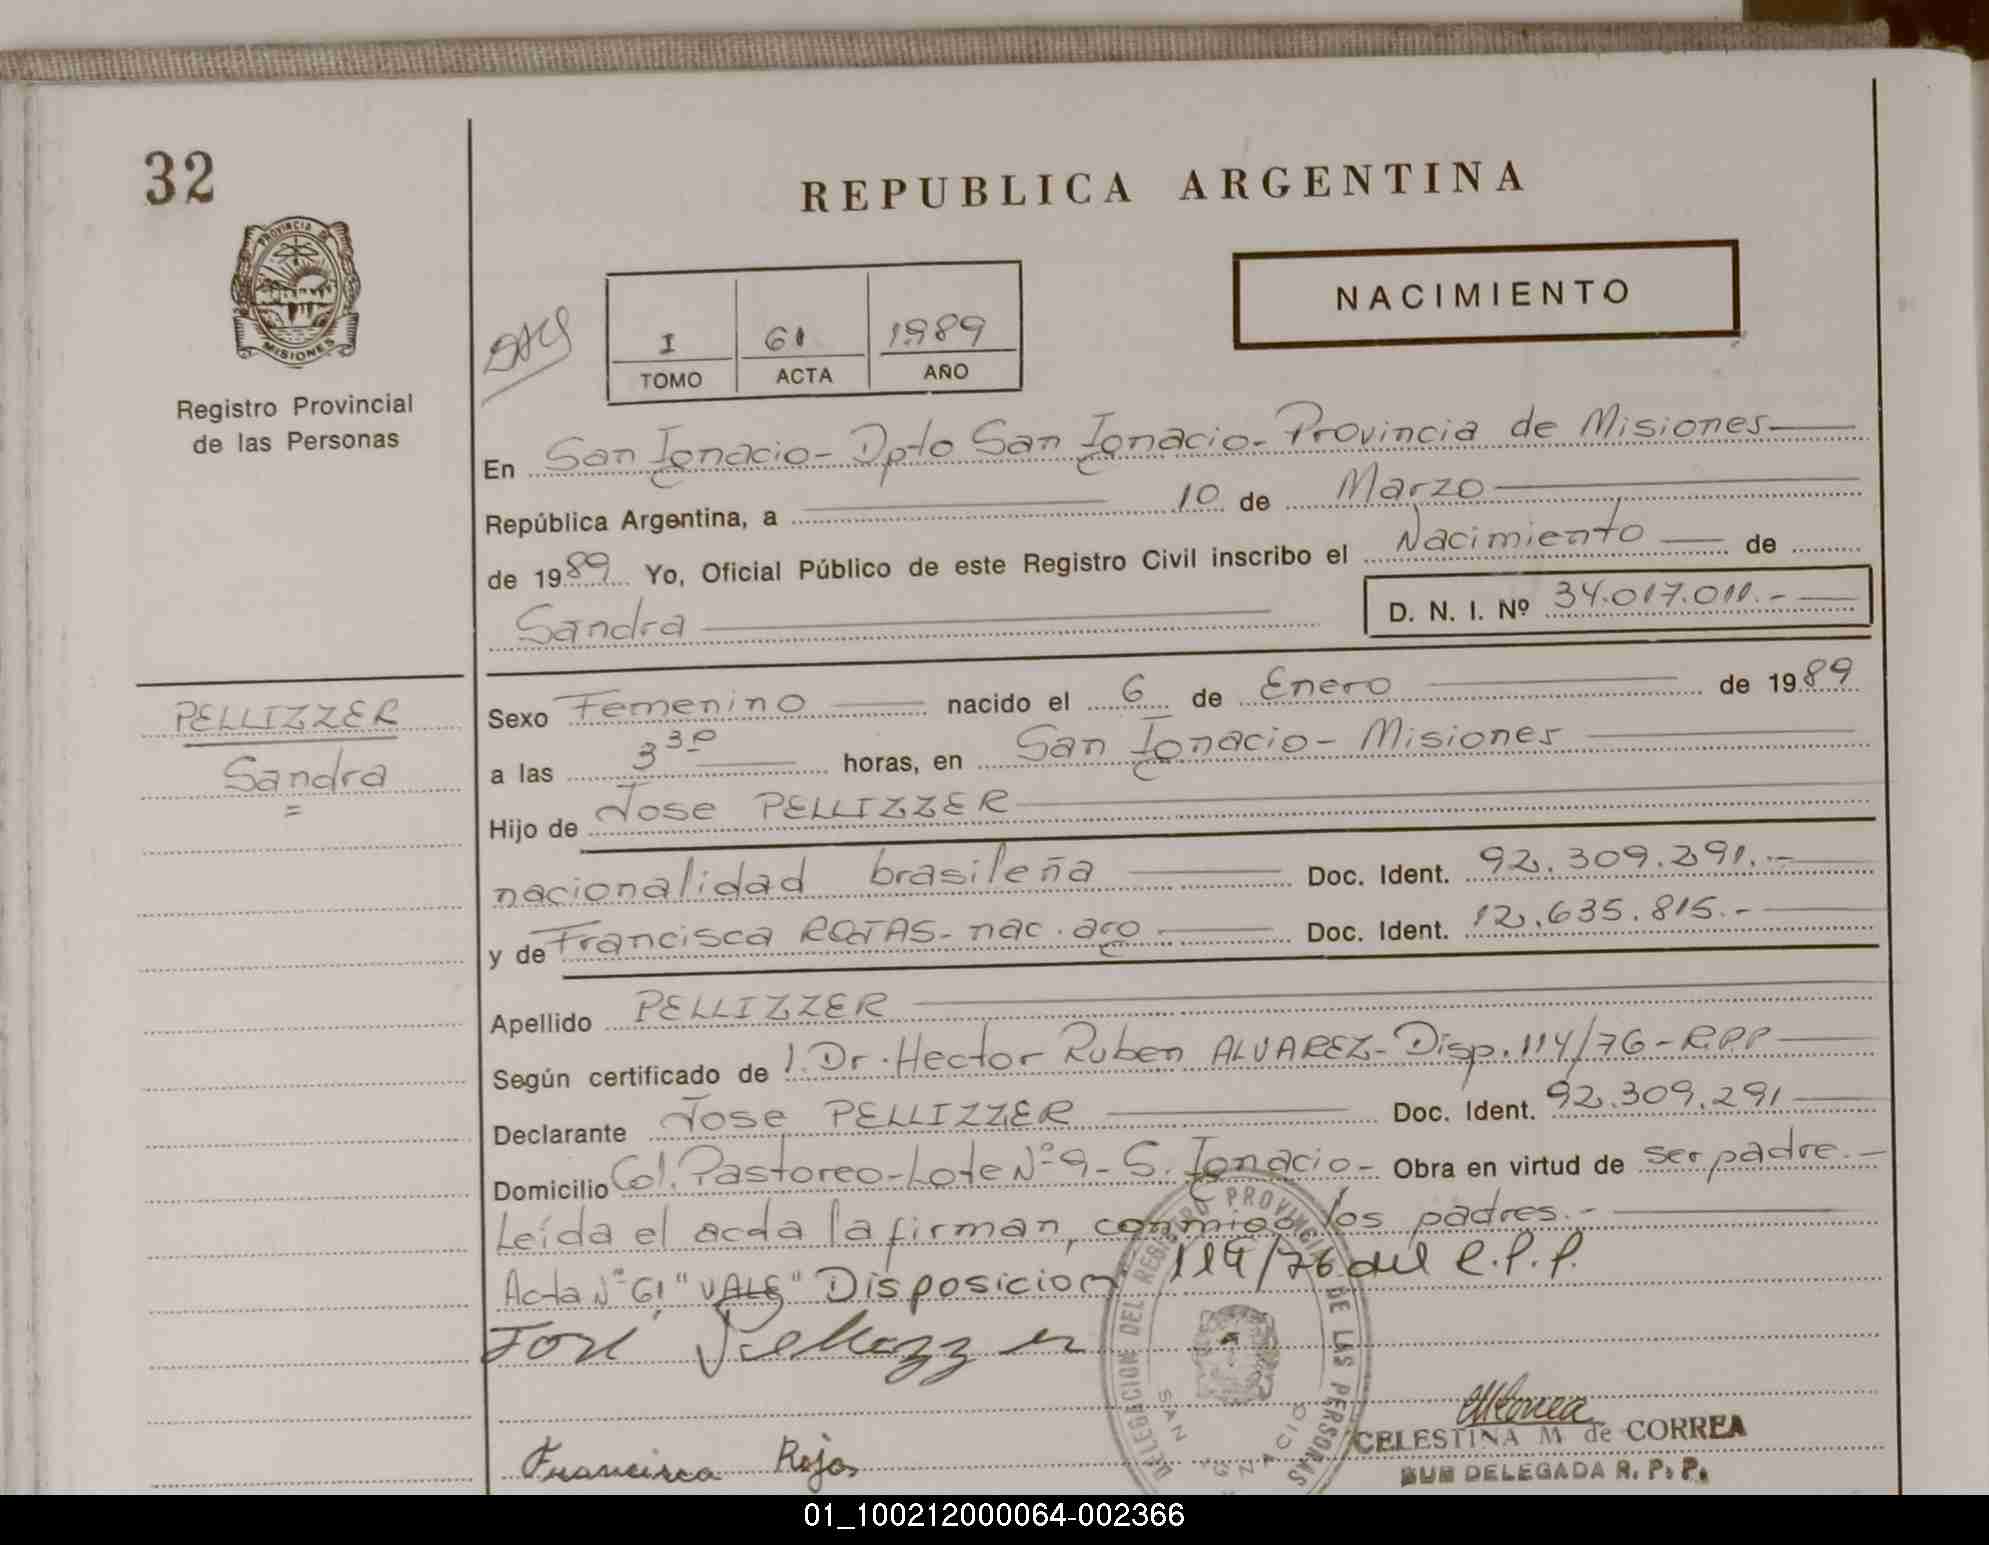 32
REPUBLICA ARGENTINA
PROVINCIA DE
MISIONES
NACIMIENTO
I 61 1989
TOMO ACTA AÑO
Registro Provincial
de las Personas
En San Ignacio - Dpto San Ignacio - Provincia de Misiones
República Argentina, a 10 de Marzo
de 1989 Yo, Oficial Público de este Registro Civil inscribo el Nacimiento de
Sandra D. N. I. Nº 34.017.011.-
PELLIZZER
Sandra
Sexo Femenino nacido el 6 de Enero de 1989
a las 3 30 horas, en San Ignacio - Misiones
Hijo de Jose PELLIZZER
nacionalidad brasileña Doc. Ident. 92.309.291.-
y de Francisca ROJAS - nac. arg Doc. Ident. 12.635.815.-
Apellido PELLIZZER
Según certificado de l. Dr. Hector Ruben ALVAREZ - Disp. 114/76 - R.P.P
Declarante Jose PELLIZZER Doc. Ident. 92.309.291
Domicilio Col. Pastoreo - Lote Nº 9 - S. Ignacio - Obra en virtud de ser padre.-
Leída el acda la firman, conmigo los padres.-
Acta Nº 61 "VALE" Disposicion 114/76 del R.P.P.
José Pellizzer
DELEGACION DEL REGISTRO PROVINCIAL DE LAS PERSONAS
SAN IGNACIO
CELESTINA M de CORREA
SUB DELEGADA R. P. P.
Francisca Rojas
01_100212000064-002366